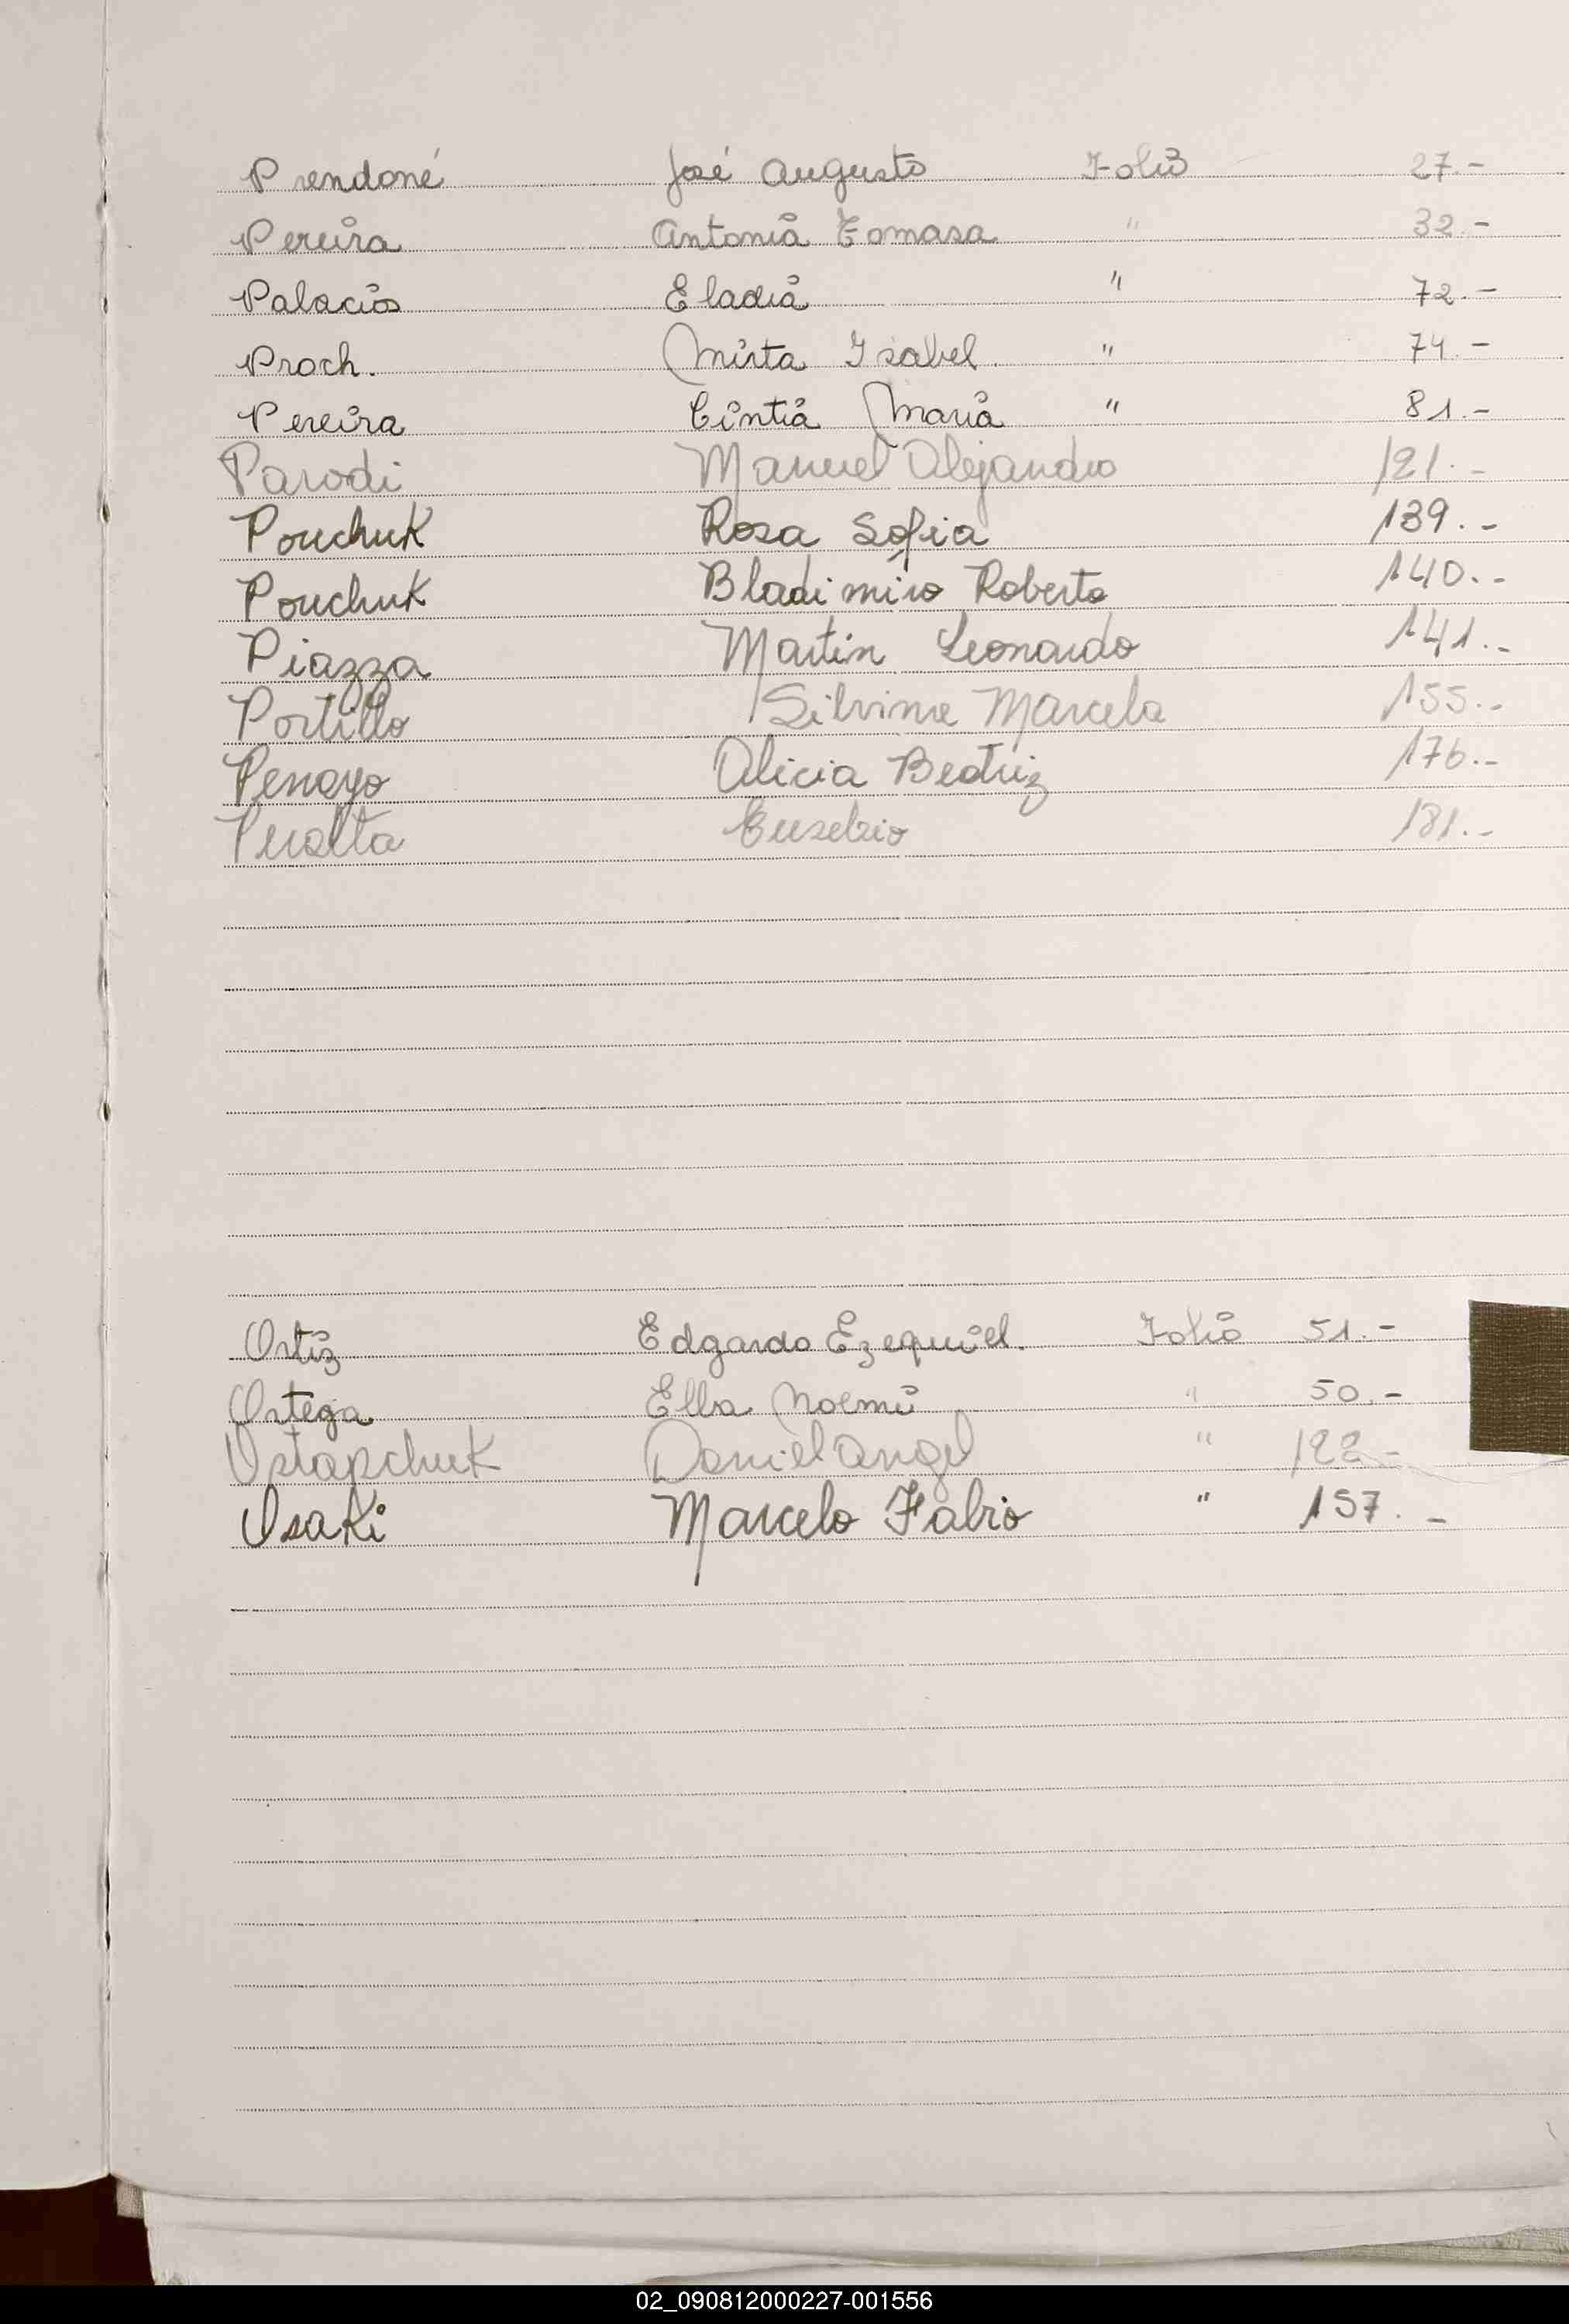 Prendoné José Augusto Folio 27.-
Pereira Antonia Tomasa " 32.-
Palacios Eladia " 72.-
Proch. Mirta Isabel. " 74.-
Pereira Cintia Maria " 81.-
Parodi Manuel Alejandro 121.-
Pouchuk Rosa Sofia 139.-
Pouchuk Bladimiro Roberto 140.-
Piazza Martin Leonardo 141.-
Portillo Silvina Marcela 155.-
Penayo Alicia Beatriz 176.-
Peralta Eusebio 181.-
Ortiz Edgardo Ezequiel. Folio 51.-
Ortega Elba Noemi " 50.-
Ostapchuk Daniel Angel " 122-
Osaki Marcelo Fabio " 157.-
02_090812000227-001556